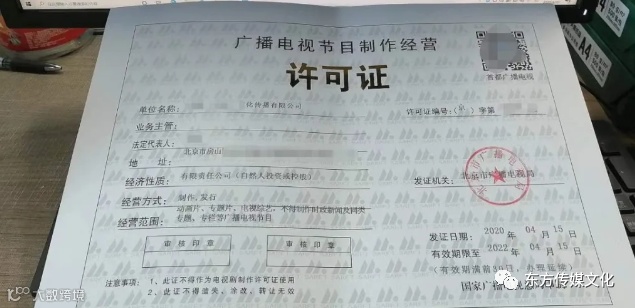 广播电视节目制作经营
许可证
首都广播电视
单位名称: 化传媒有限公司
许可证编号:(京)字第
业务主管:
法定代表人:
地 址: 北京市房山
经济性质: 有限责任公司(自然人投资或控股)
发证机关: 北京市广播电视局
经营方式: 制作,发行
经营范围: 动画片、专题片、电视综艺,不得制作时政新闻及同类
专题、专栏等广播电视节目
审核印章
审核印章
发证日期: 2020 年 04 月 15 日
有效期限至 2022 年 04 月 15 日
(有效期满前
注意事项: 1、此证不得作为电视剧制作许可证使用
2、此证不得遗失、涂改、转让无效
国家广播电视
大数跨境
东方传媒文化
A4